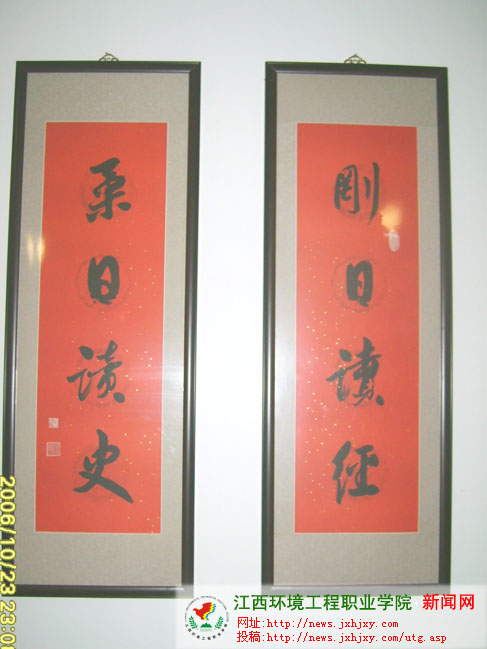 剛日讀經
柔日讀史
2006/10/23 23:0
江西环境工程职业学院 新闻网
网址:http://news.jxhjxy.com
投稿:http://news.jxhjxy.com/utg.asp